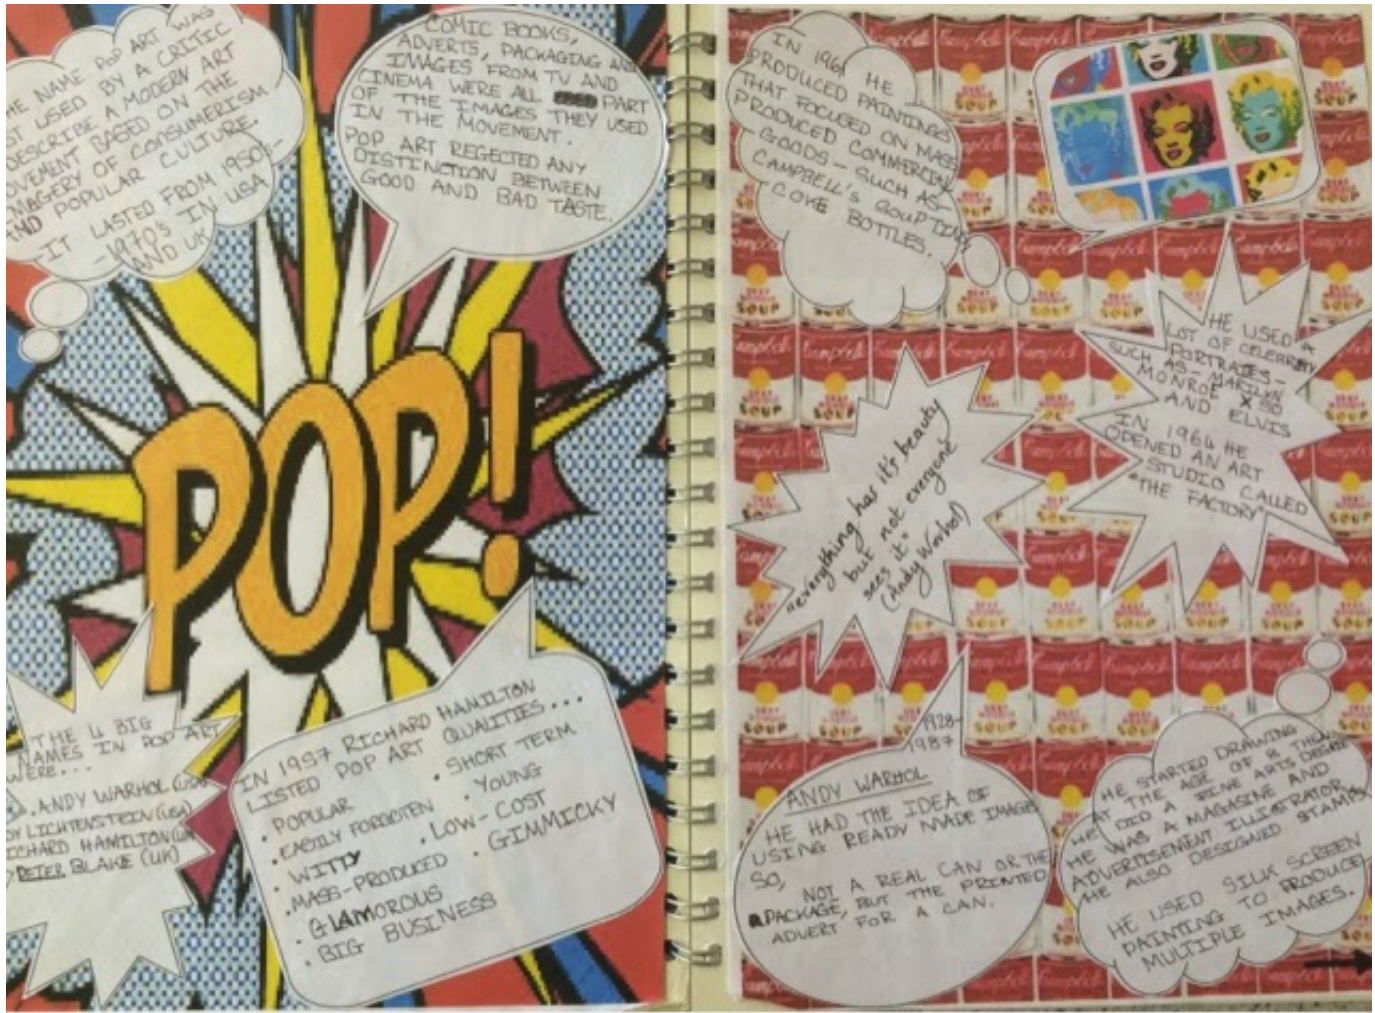 HE NAME POP ART WAS
ST USED BY A CRITIC
DESCRIBE A MODERN ART
OVEMENT BASED ON THE
IMAGERY OF CONSUMERISM
AND POPULAR CULTURE.
IT LASTED FROM 1950's-
-1970's IN USA
AND UK
COMIC BOOKS,
ADVERTS, PACKAGING AND
IMAGES FROM TV AND
CINEMA WERE ALL PART
OF THE IMAGES THEY USED
IN THE MOVEMENT.
POP ART REGECTED ANY
DISTINCTION BETWEEN
GOOD AND BAD TASTE.
POP!
THE 4 BIG
NAMES IN POP ART
WERE...
.ANDY WARHOL (USA)
OY LICHTENSTEIN (USA)
ICHARD HAMILTON (UK)
PETER BLAKE (UK)
IN 1957 RICHARD HAMILTON
LISTED POP ART QUALITIES...
• POPULAR
• EASILY FORGOTEN
• WITTY
• MASS-PRODUCED
• GLAMOROUS
• BIG BUSINESS
• SHORT TERM
• YOUNG
• LOW-COST
• GIMMICKY
IN 1961 HE
PRODUCED PAINTINGS
THAT FOCUSED ON MASS
PRODUCED COMMERCIAL
GOODS - SUCH AS-
CAMPBELL'S SOUP TINS
COKE BOTTLES.
HE USED A
LOT OF CELEBRITY
PORTRATES-
SUCH AS- MARILYN
MONROE X 50
AND ELVIS
IN 1964 HE
OPENED AN ART
STUDIO CALLED
"THE FACTORY"
"everything has it's beauty
but not everyone
sees it"
(Andy Warhol)
1928-
1987
ANDY WARHOL
HE HAD THE IDEA OF
USING READY MADE IMAGES
SO,
NOT A REAL CAN OR THE
PACKAGE, BUT THE PRINTED
ADVERT FOR A CAN.
HE STARTED DRAWING
AT THE AGE OF 8 THEN
HE DID A FINE ARTS DEGREE
HE WAS A MAGASINE AND
ADVERTISEMENT ILLISTRATOR
HE ALSO DESIGNED STAMPS
HE USED SILK SCREEN
PAINTING TO PRODUCE
MULTIPLE IMAGES.
Campbell's
SOUP